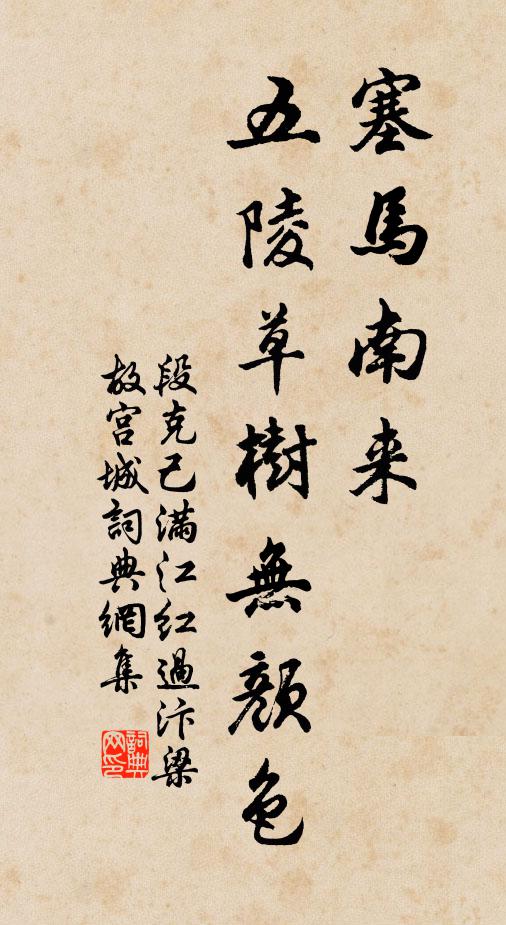 塞馬南来
五陵草樹無顏色
段克己满江红過汴梁
故宫城詞典網集
詞典網印